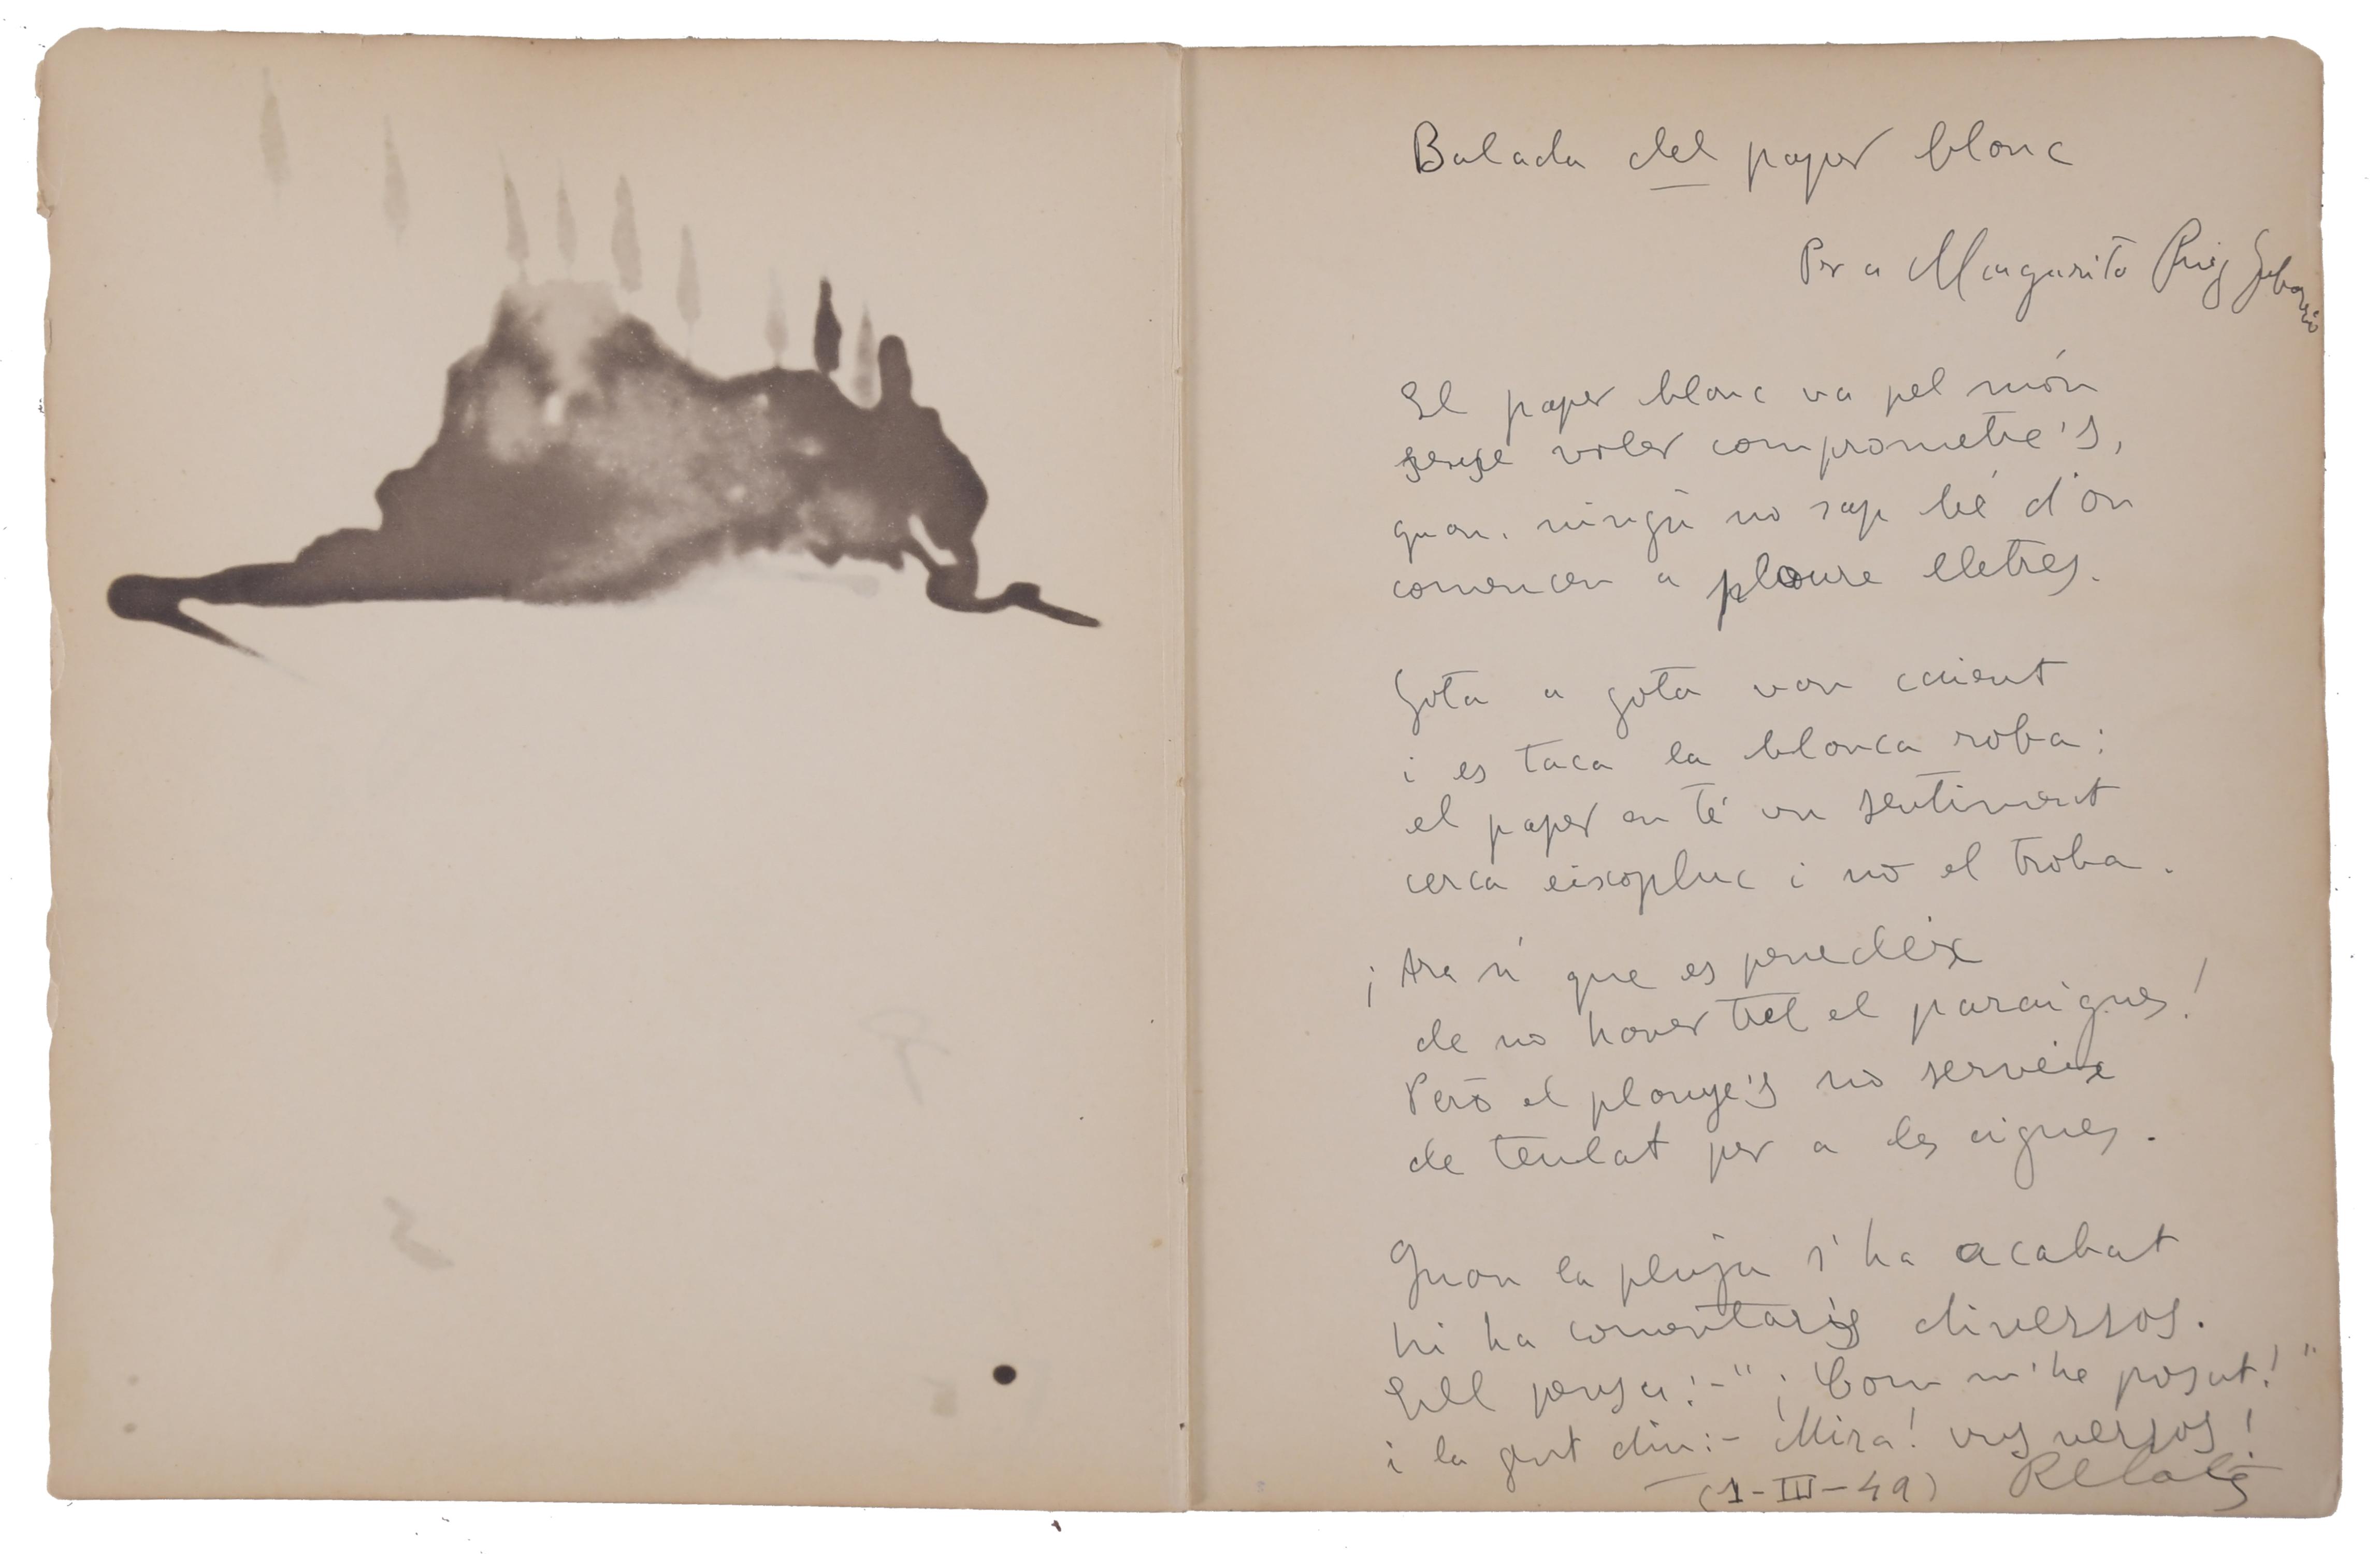 Balada del paper blanc
Per a Margarita Puig
El paper blanc va pel món
sense voler comprometre's,
quan ningú no sap bé d'on
comencen a ploure lletres.
Gota a gota van caient
i es taca la blanca roba:
el paper en té un sentiment
cerca eixopluc i no el troba.
¡Ara sí que es penedeix
de no haver tret el paraigues!
Però el planye's no serveix
de teulat per a les aigues.
Quan la pluja s'ha acabat
hi ha comentaris diversos.
Ell pensa:-"¡Com m'he posat!"
i la gent diu:- Mira! uns versos!
(1-III-49)